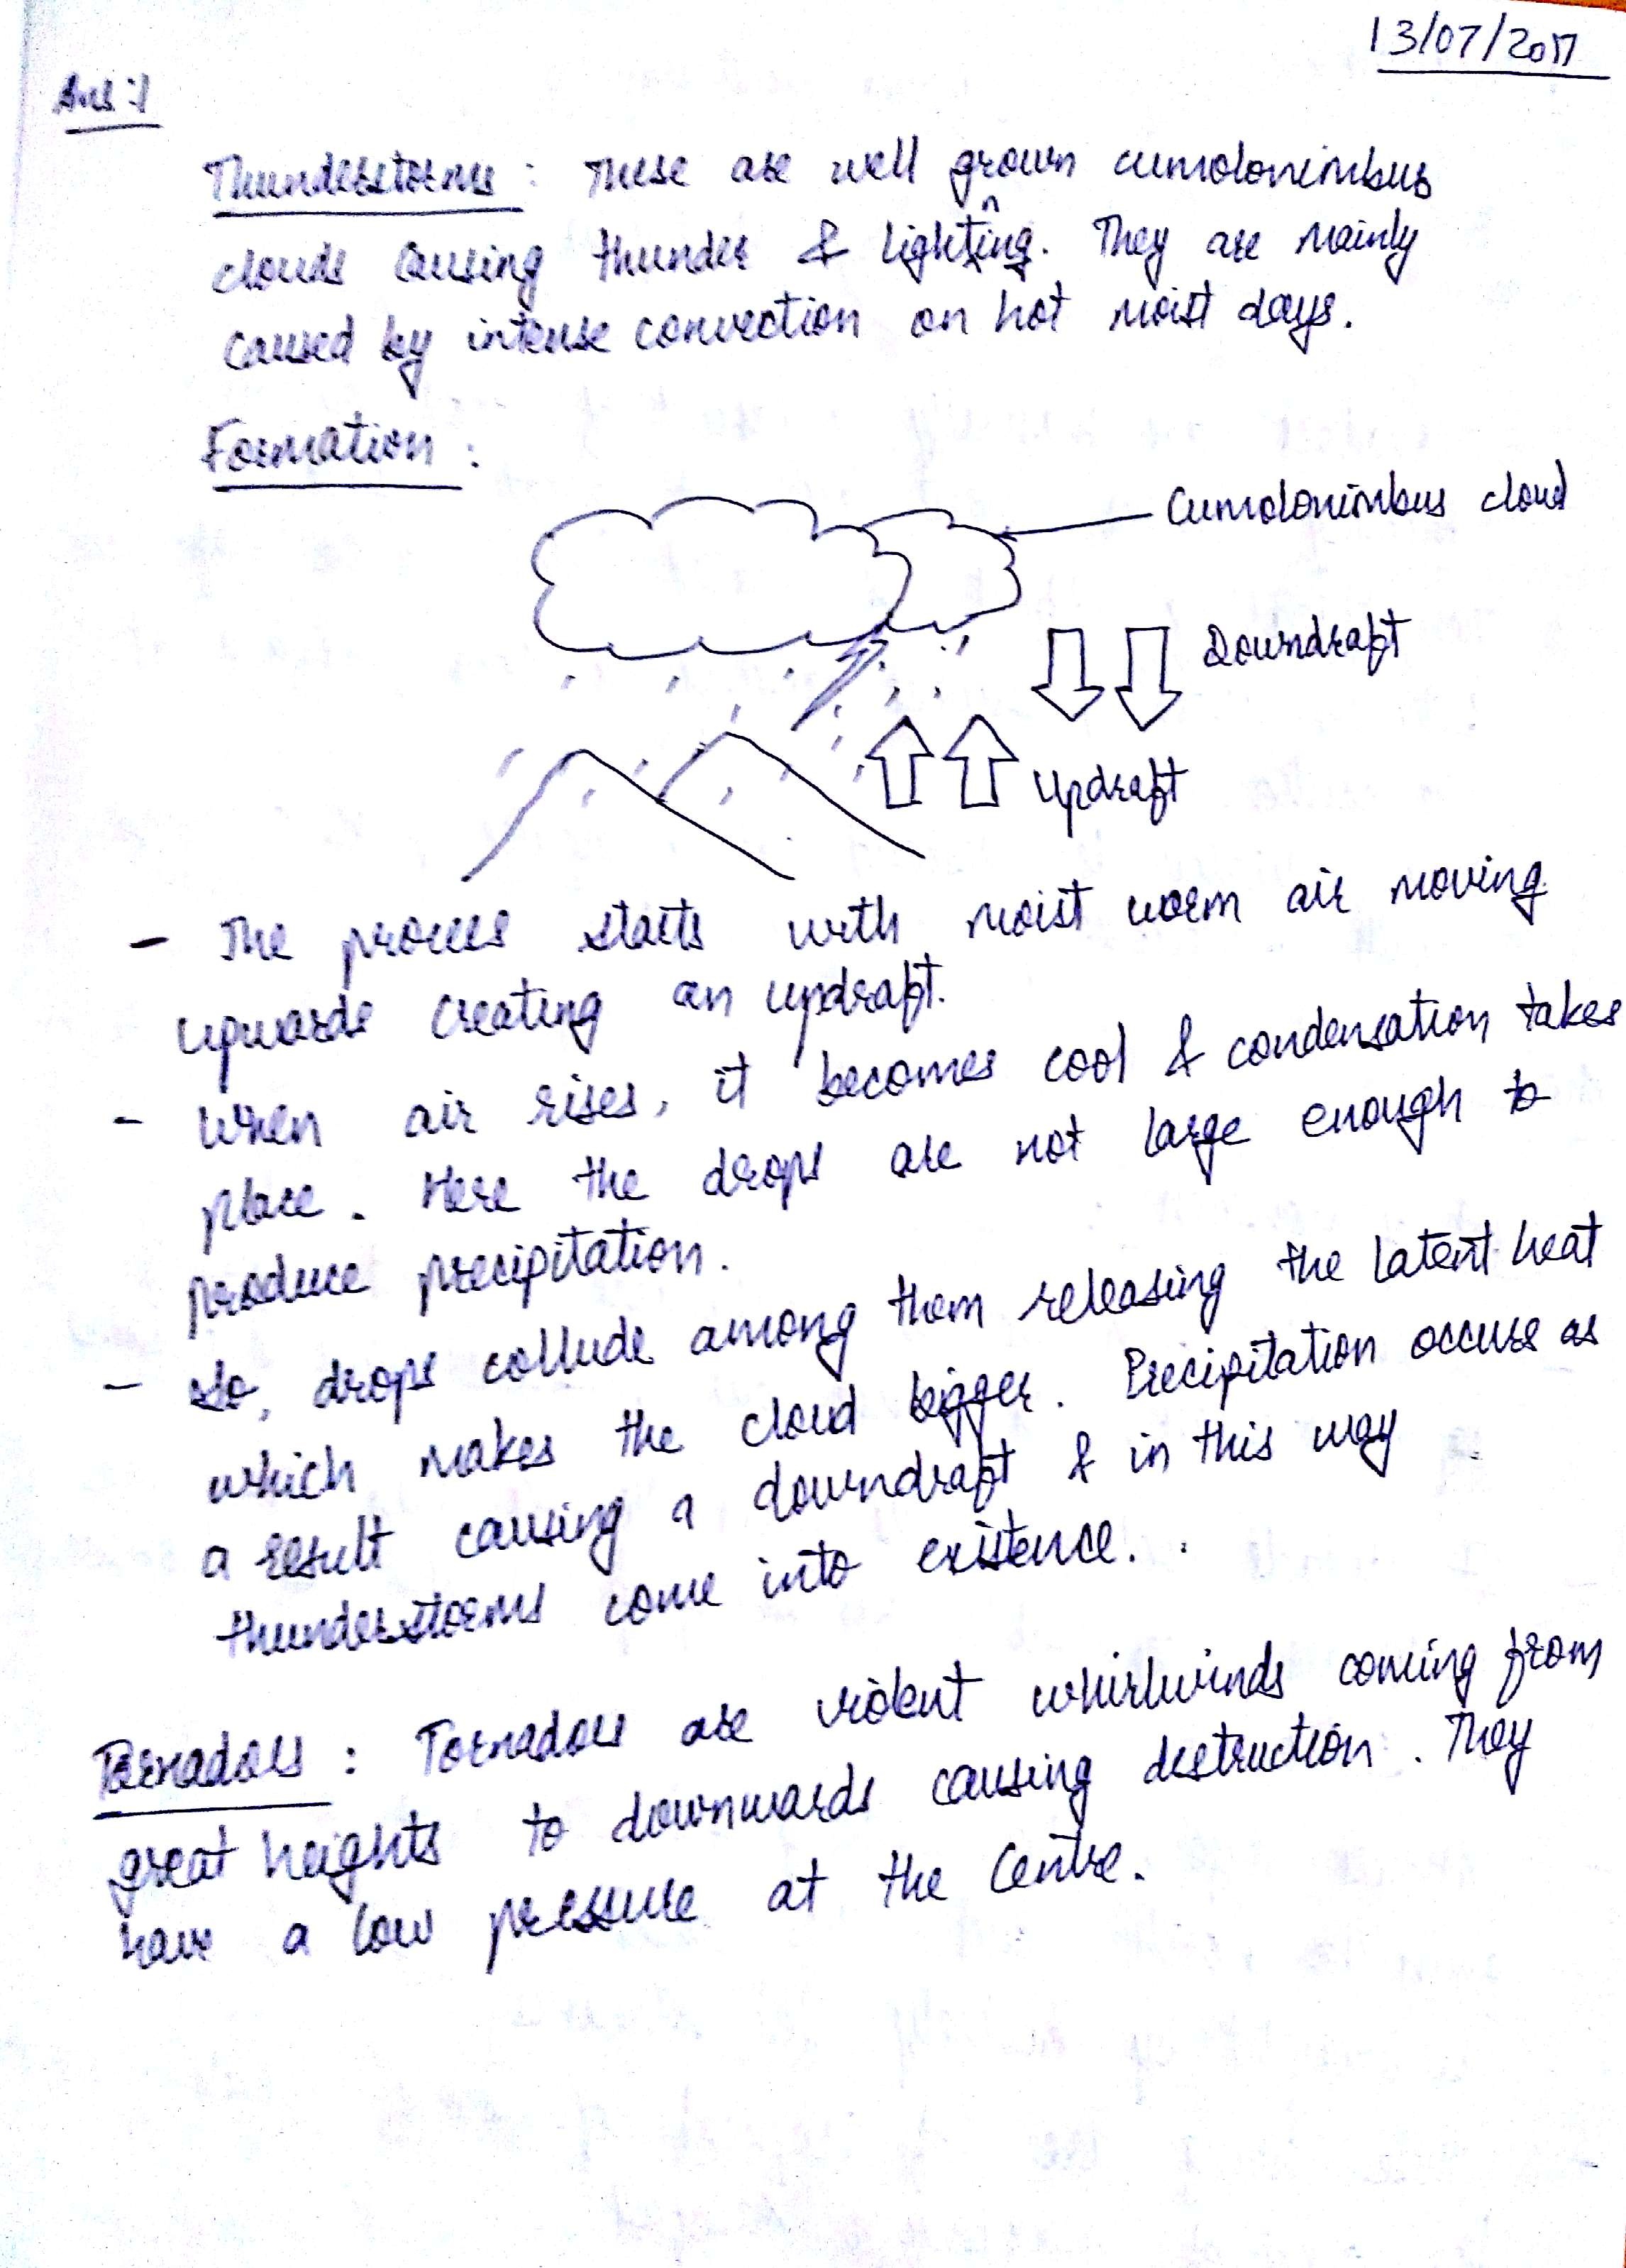 13/07/2017
Ans:1
Thunderstorms: These are well grown cumolonimbus
clouds causing thunder & lighting. They are mainly
n
caused by intense convection on hot moist days.
Formation:
Cumolonimbus cloud
Downdraft
Updraft
- The process starts with moist worm air moving
upwards creating an updraft.
- When air rises, it becomes cool & condensation takes
place. Here the drops are not large enough to
produce precipitation.
- So, drops collude among them releasing the latent heat
which makes the cloud bigger. Precipitation occurs as
a result causing a downdraft & in this way
thunderstorms come into existence.
Tornadoes: Tornadoes are violent whirlwinds coming from
great heights to downwards causing destruction. They
have a low pressure at the centre.